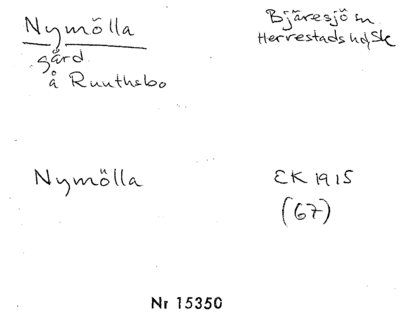 Nymölla
gård
å Ruuthsbo
Bjäresjö sn
Herrestads hd, Sk
Nymölla
EK 1915
(67)
Nr 15350